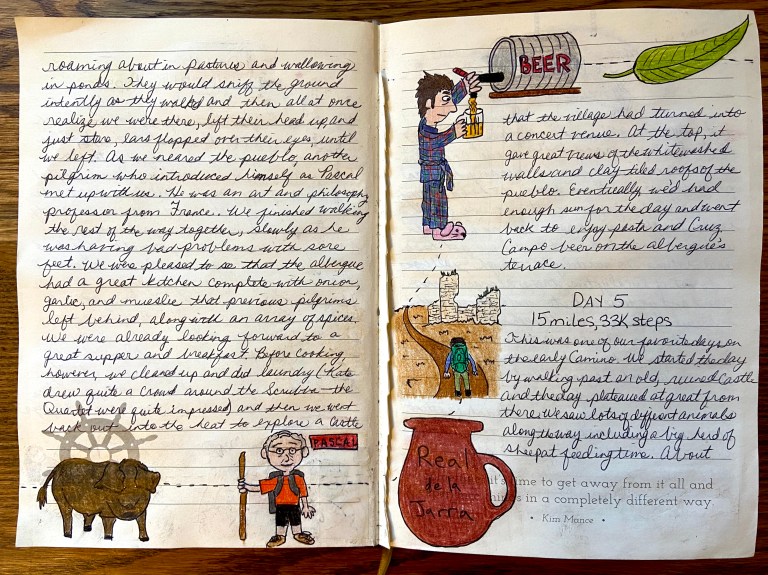 roaming about in pastures and wallowing
in ponds. They would sniff the ground
intently as they walked and then all at once
realize we were there, lift their head up, and
just stare, ears flopped over their eyes, until
we left. As we neared the pueblo, another
pilgrim who introduced himself as Pascal
met up with us. He was an art and philosophy
professor from France. We finished walking
the rest of the way together, slowly as he
was having bad problems with sore
feet. We were pleased to see that the albergue
had a great kitchen complete with onion,
garlic, and mueslie that previous pilgrims
left behind, along with an array of spices.
We were already looking forward to a
great supper and breakfast. Before cooking,
however, we cleaned up and did laundry (Kate
drew quite a crowd around the Scrubba – the
Quartet were quite impressed) and then we went
back out into the heat to explore a castle
PASCAL
BEER
that the village had turned into
a concert venue. At the top, it
gave great views of the whitewashed
walls and clay tiled roofs of the
pueblo. Eventually we'd had
enough sun for the day and went
back to enjoy pasta and Cruz
Campo beer on the albergue's
terrace.
DAY 5
15 miles, 33K steps
This was one of our favorite days on
the early Camino. We started the day
by walking past an old, ruined castle
and the day plateaued at great from
there. We saw lots of different animals
along the way including a big herd of
sheep at feeding time. About
Real
de la
Jarra
it's me to get away from it all and
things in a completely different way
• Kim Mance •